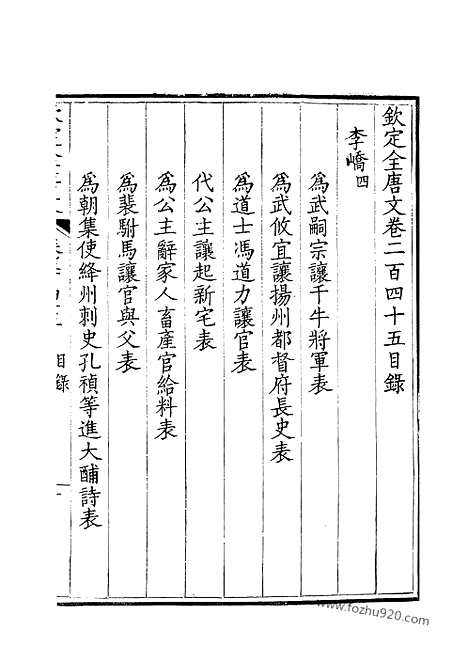 欽定全唐文卷二百四十五目錄
李嶠四
爲武嗣宗讓千牛將軍表
爲武攸宜讓揚州都督府長史表
爲道士馮道力讓官表
代公主讓起新宅表
爲公主辭家人畜產官給料表
爲裴駙馬讓官與父表
爲朝集使絳州刺史孔禎等進大酺詩表
目錄
www.fozhu920.com